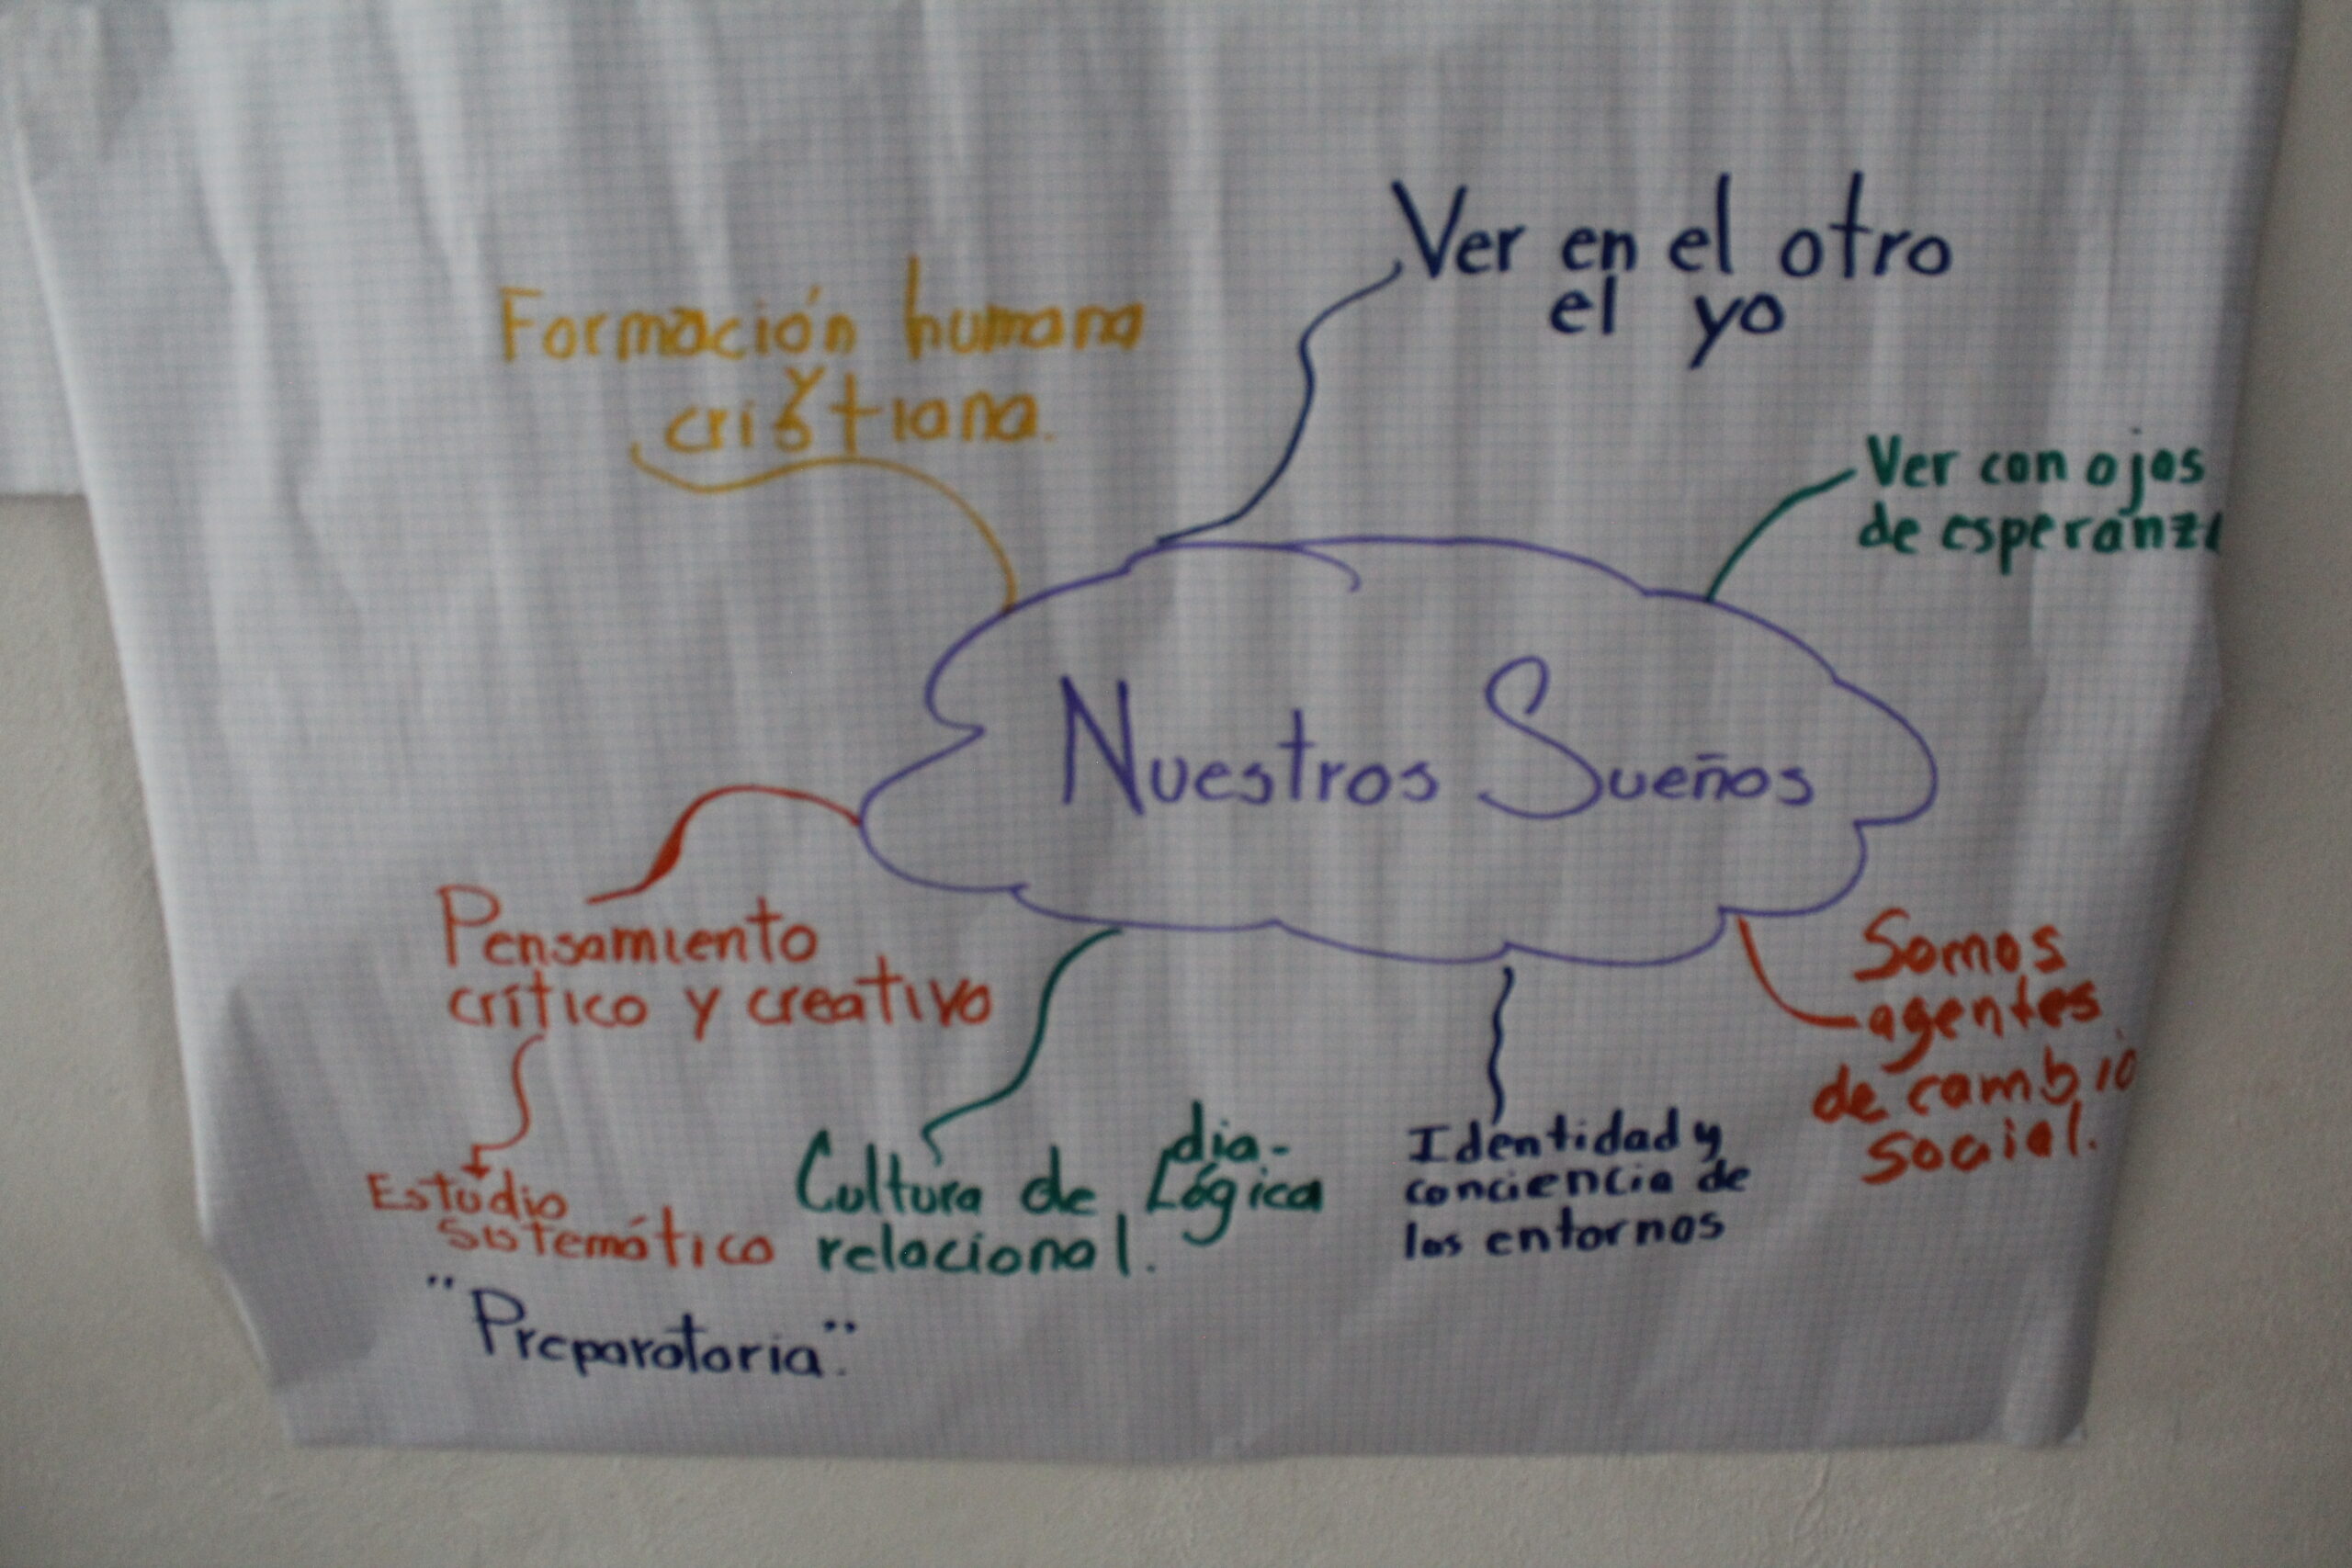 Ver en el otro
el yo
Formación humana
y
cristiana.
Ver con ojos
de esperanza
Nuestros Sueños
Pensamiento
crítico y creativo
Somos
agentes
de cambio
social.
Estudio
sistemático
Cultura de dia-
lógica
relacional.
Identidad y
conciencia de
los entornos
"Preparatoria".